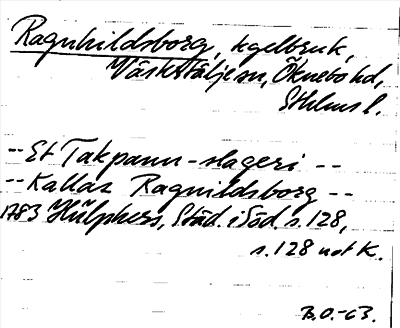 Ragnhildsborg, tegelbruk,
Västertälje sn, Öknebo hd,
Sthlms l.
-- Et Takpann-slageri --
-- Kallas Ragnildsborg --
1783 Hülphers, Städ. i Söd. s. 128,
s. 128 not K.
B.O.-63.